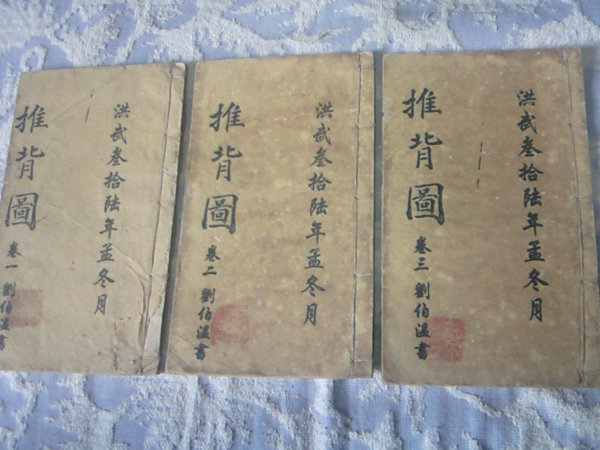 洪武叁拾陸年孟冬月
推背圖 卷一 劉伯溫書
洪武叁拾陸年孟冬月
推背圖 卷二 劉伯溫書
洪武叁拾陸年孟冬月
推背圖 卷三 劉伯溫書